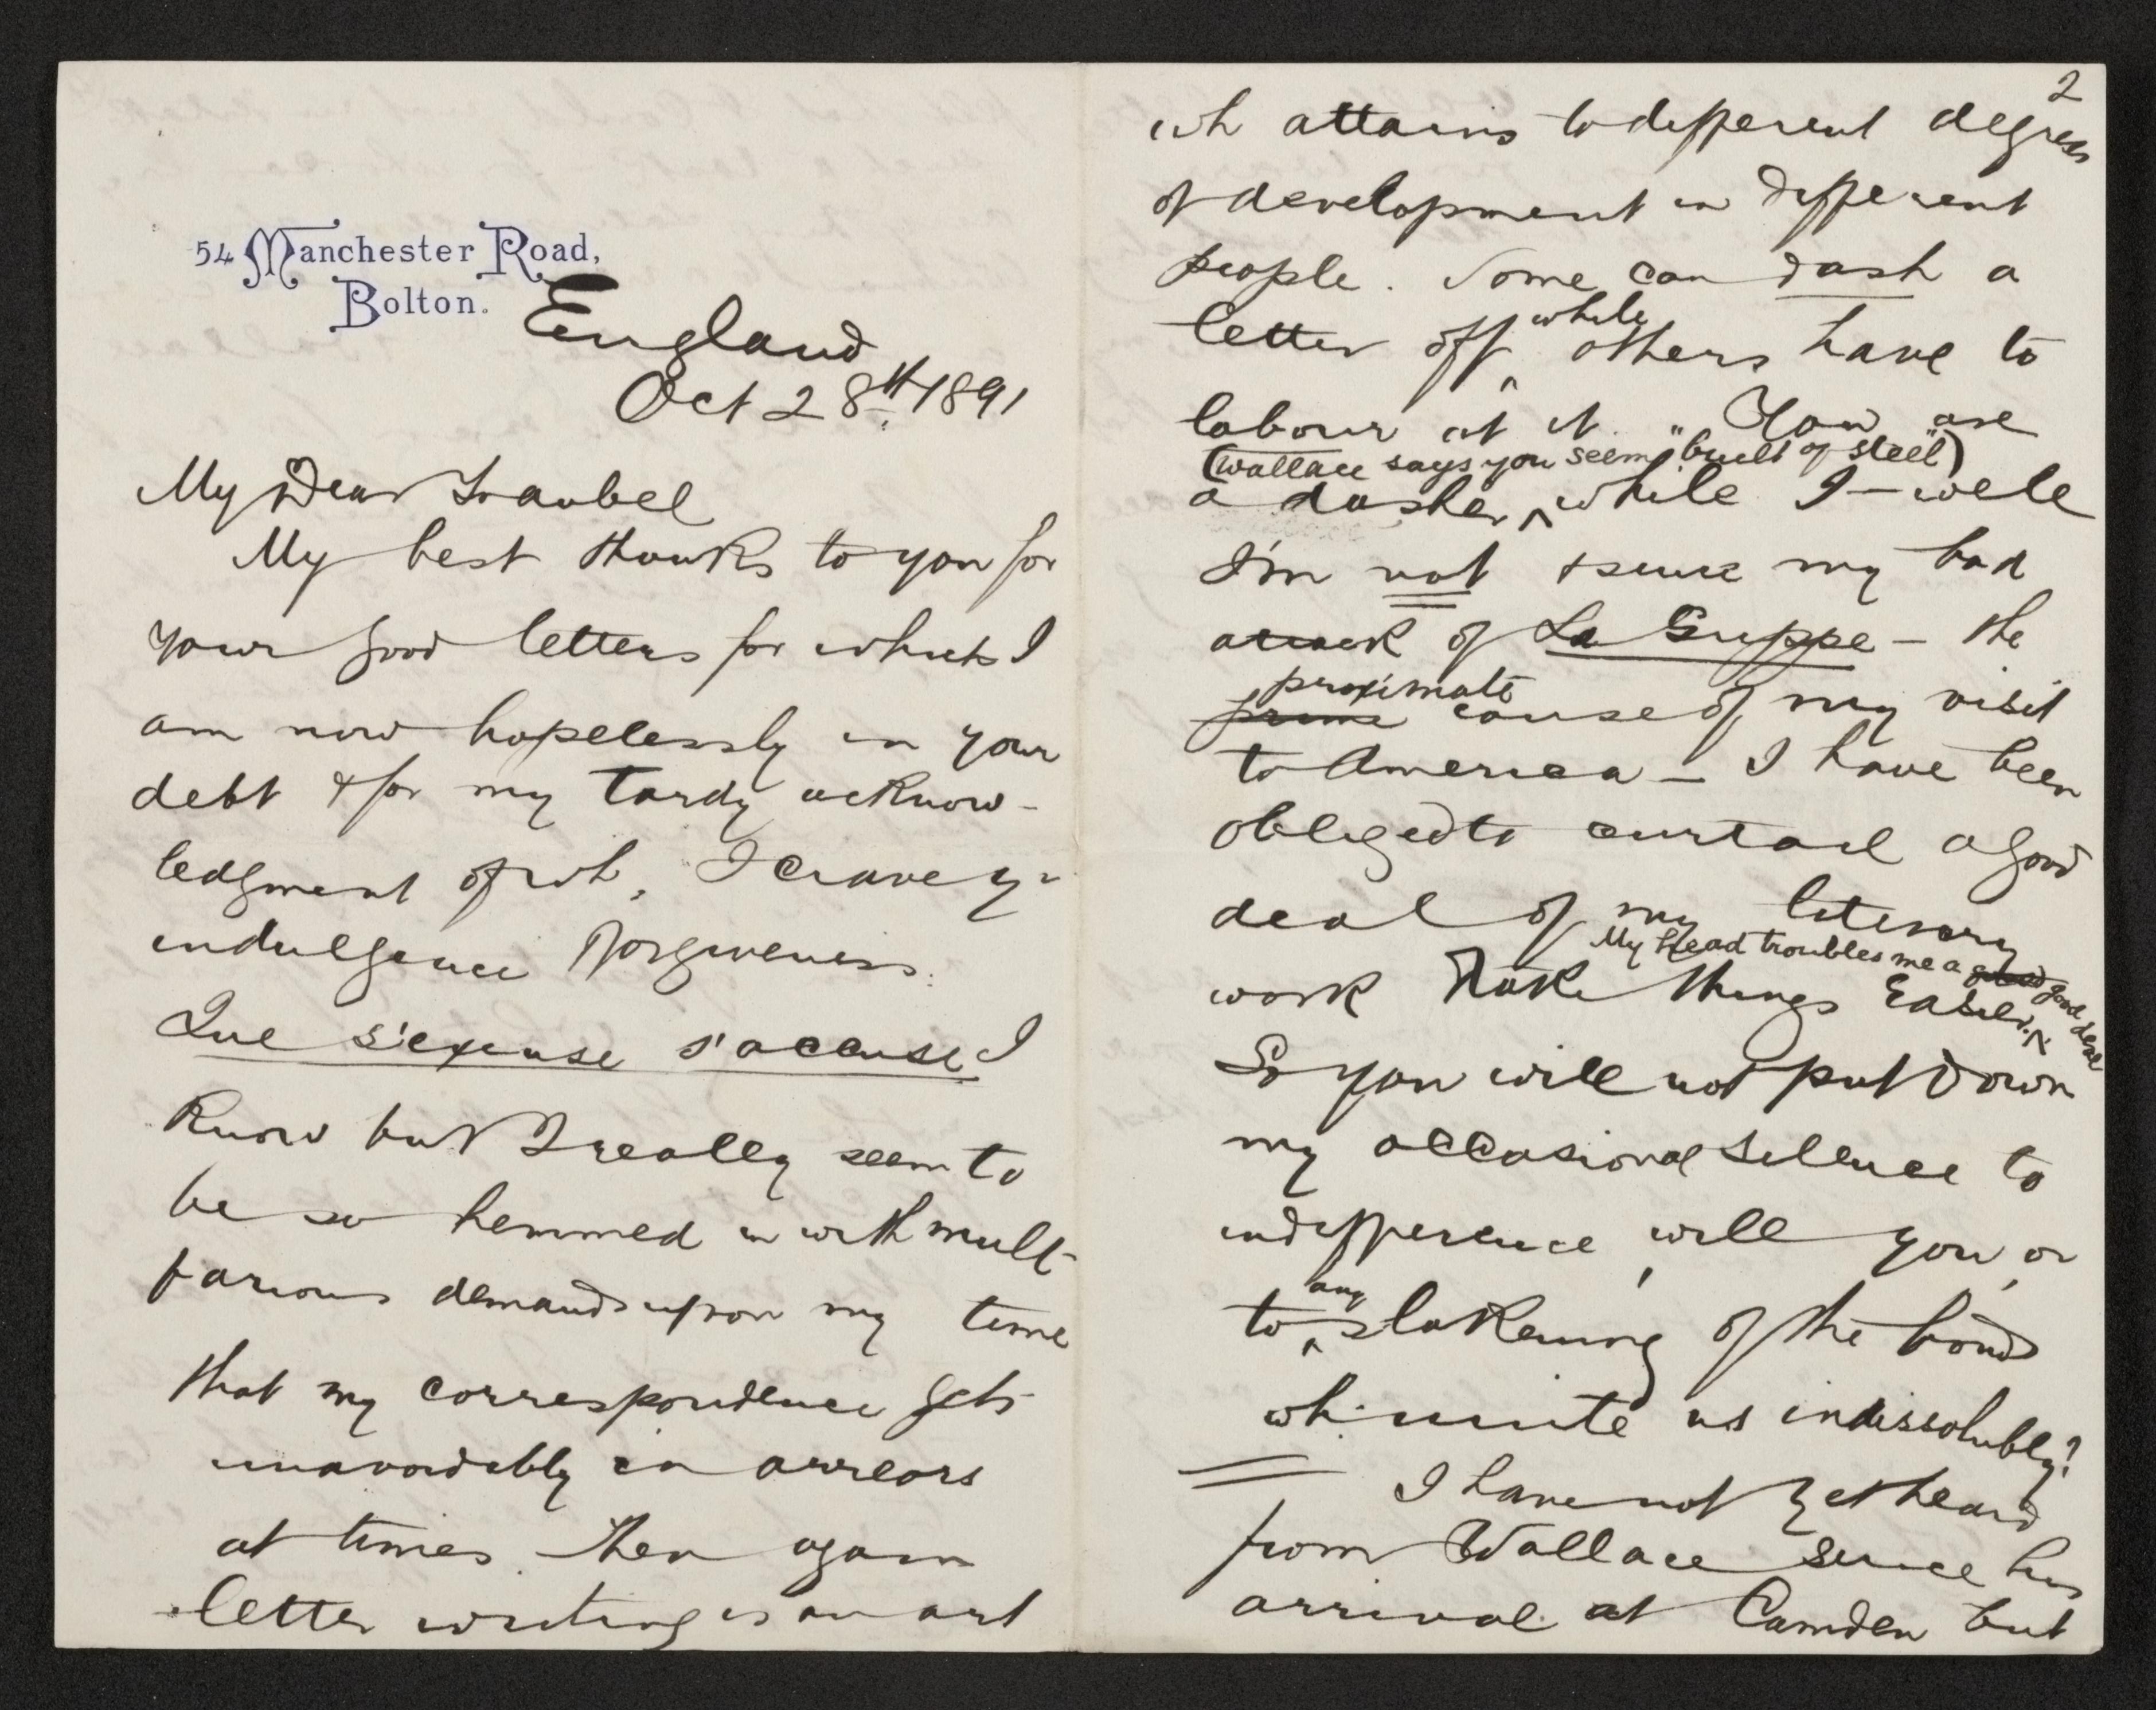 54 Manchester Road,
Bolton.
England
Oct 28th. 1891
My Dear Traubel
My best thanks to you for
your good letters for which I
am now hopelessly in your
debt & for my tardy acknow-
ledgment of wh, I crave yr
indulgence & forgiveness.
Qui s'excuse s'accuse I
know but I really seem to
be so hemmed in with multi-
farious demands upon my time
that my correspondence gets
unavoidably in arrears
at times. Then again
letter writing is an art
2
wh attains to different degrees
of development in different
people. Some can dash a
letter off while others have to
labour at it. You are
(Wallace says you seem "built of steel")
a dasher, while I — well
I'm not & since my bad
attack of La Grippe — the
proximate
prime cause of my visit
to America — I have been
obliged to curtail a good
deal of my literary
My head troubles me a good good deal
work & take things easier.
So you will not put down
my occasional silence to
indifference, will you, or
to any slakening of the bonds
wh. unite us indissolubly?
I have not yet heard
from Wallace since his
arrival at Camden but